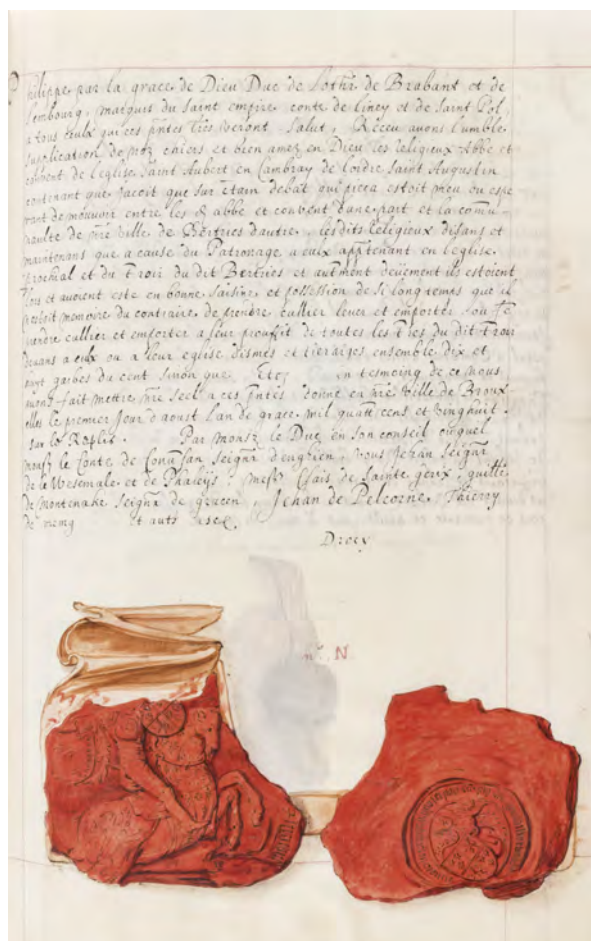 Philippe par la grace de Dieu Duc de Lothr de Brabant et de
Lembourg, marquis du saint empire, conte de Liney et de Saint Pol,
a tous ceulx qui ces pntes lres veront, Salut, Receu avons l'umble
supplication de noz chiers et bien amez en Dieu les religieux Abbe et
convent de l'eglise Saint Aubert en Cambray de l'ordre Saint Augustin
contenant que jacoit que sur ctain debat qui pieca estoit meu ou espe
rant de mouvoir entre les d abbe et convent d'une part et la comu
naulte de nre ville de Bertries d'autre, lesdits religieux disans et
maintenans que a cause du Patronage a eulx apptenant en l'eglise
et du Troir du dit Bertries et autment deuement ils estoient
et avoient este en bonne saisine et possession de si long temps que il
n'estoit memoire du contraire, de prendre cullier lever et emporter ou fe
prendre cullier et emporter a leur prouffit de toutes les tres du dit Troir
devans a eulx ou a leur eglise dismes et tieraiges, ensemble dix et
sept garbes du cent sinon que Etc in tesmoing de ce nous
avons fait mettre nre seel a ces pntes donne en nre ville de Broux
elles le premier Jour d'aoust l'an de grace mil quatt cens et vinghuit.
sur le Par monsr le Duc en son conseil ouquel
monsr le Conte de seignr d'enghien, vous Jehan seignr
de le Wesemale et de Phaleijs, messr de Sainte
de Montenake seignr de, Jehan de Pelcorne, Thierry
de et auts
N